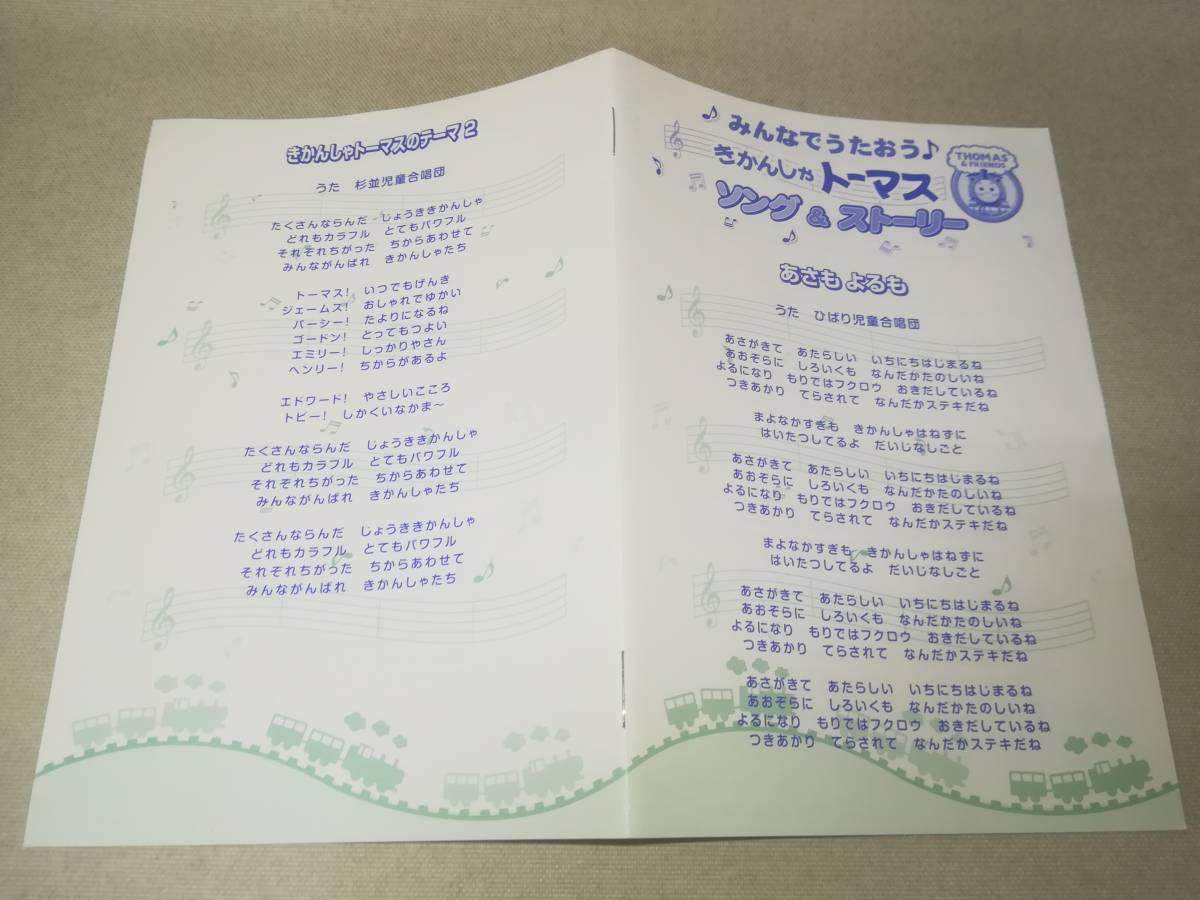 きかんしゃトーマスのテーマ 2
うた　杉並児童合唱団
たくさんならんだ　じょうききかんしゃ
どれもカラフル　とてもパワフル
それぞれちがった　ちからあわせて
みんながんばれ　きかんしゃたち
トーマス!　いつでもげんき
ジェームス!　おしゃれでゆかい
パーシー!　たよりになるね
ゴードン!　とってもつよい
エミリー!　しっかりやさん
ヘンリー!　ちからがあるよ
エドワード!　やさしいこころ
トビー!　しかくいなかま〜
たくさんならんだ　じょうききかんしゃ
どれもカラフル　とてもパワフル
それぞれちがった　ちからあわせて
みんながんばれ　きかんしゃたち
たくさんならんだ　じょうききかんしゃ
どれもカラフル　とてもパワフル
それぞれちがった　ちからあわせて
みんながんばれ　きかんしゃたち
みんなでうたおう♪
きかんしゃ トーマス
ソング & ストーリー
THOMAS
& FRIENDS
あさも よるも
うた　ひばり児童合唱団
あさがきて　あたらしい　いちにちはじまるね
あおぞらに　しろいくも　なんだかたのしいね
よるになり　もりではフクロウ　おきだしているね
つきあかり　てらされて　なんだかステキだね
まよなかすぎも　きかんしゃはねずに
はいたつしてるよ　だいじなしごと
あさがきて　あたらしい　いちにちはじまるね
あおぞらに　しろいくも　なんだかたのしいね
よるになり　もりではフクロウ　おきだしているね
つきあかり　てらされて　なんだかステキだね
まよなかすぎも　きかんしゃはねずに
はいたつしてるよ　だいじなしごと
あさがきて　あたらしい　いちにちはじまるね
あおぞらに　しろいくも　なんだかたのしいね
よるになり　もりではフクロウ　おきだしているね
つきあかり　てらされて　なんだかステキだね
あさがきて　あたらしい　いちにちはじまるね
あおぞらに　しろいくも　なんだかたのしいね
よるになり　もりではフクロウ　おきだしているね
つきあかり　てらされて　なんだかステキだね